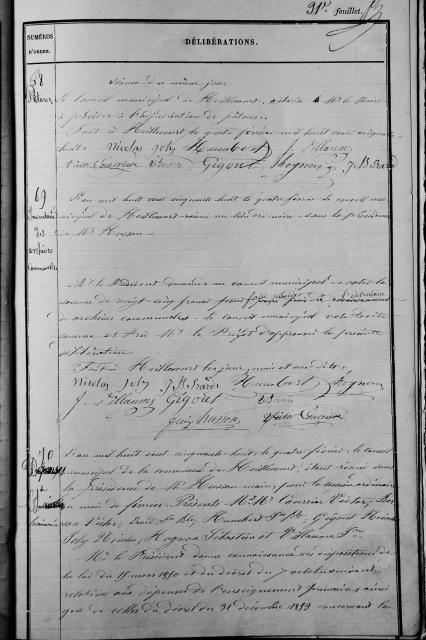 91e feuillet.
NUMÉROS D'ORDRE.
DÉLIBÉRATIONS.
68
Séance du même jour
Le Conseil municipal de Heillecourt, autorise Mr le Maire
à procéder à l'adjudication de pâtures.
Fait à Heillecourt le quatre février mil huit cent cinquante
huit. Nicolas Joly Humbert J. Villaume
Victor Gigout Hognon J. B. Erard
69
Inventaire
des
archives
communales
L'an mil huit cent cinquante huit le quatre février le conseil mu-
nicipal de Heillecourt réuni au lieu ordinaire sous la présidence
de Mr Husson
Mr le Président demande au conseil municipal de voter la
somme de vingt cinq francs pour l'inventaire
des archives communales. Le conseil municipal vote ladite
somme et prie Mr le Préfet d'approuver la présente
délibération.
Fait à Heillecourt les jour, mois et an dits.
Nicolas Joly J. B. Erard Humbert Hognon
J. Villaume Gigout
Husson Victor
70
L'an mil huit cent cinquante huit, le quatre février, le conseil
municipal de la commune de Heillecourt, étant réuni sous
la Présidence de Mr Husson maire, pour la session ordinaire
du mois de février. Présents Mrs Victor,
Victor, Erard J. Bte, Humbert, Gigout
Joly Nicolas, Hognon Sébastien et Villaume
Mr le Président donne connaissance des dispositions de
la loi du 15 mars 1850 et du décret du 7 octobre suivant
relatives aux dépenses de l'enseignement primaire, ainsi
que de celles du décret du 31 décembre 1853 concernant la